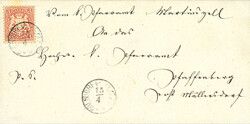 Vom k. Pfarramt Martinszell
An das
k. Pfarramt
P. S.
Pfaffenberg
Post Mallersdorf
13
4